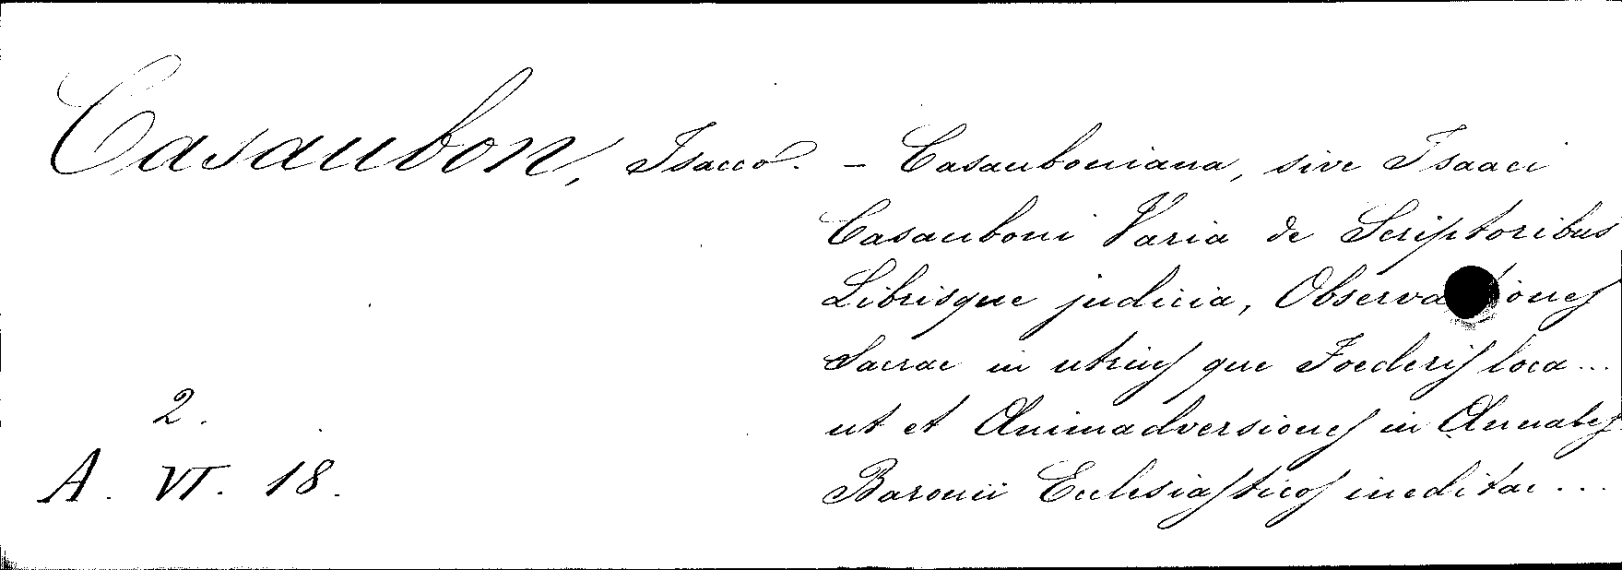 Casaubon, Isacco. - Casauboniana, sive Isaaci
Casauboni Varia de Scriptoribus
Librisque judicia, Observationes
Sacrae in utriusque Foederis loca...
ut et Animadversiones in Annales
Baronii Ecclesiasticos ineditae...
2.
A. VI. 18.